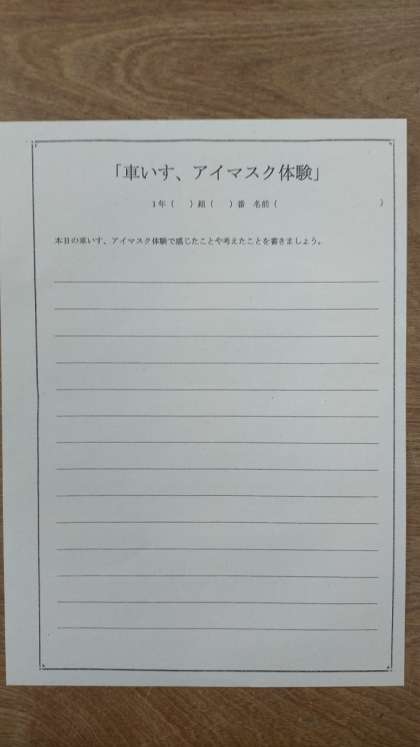 「車いす、アイマスク体験」
1年（　）組（　）番 名前（　　　　　　　　）
本日の車いす、アイマスク体験で感じたことや考えたことを書きましょう。